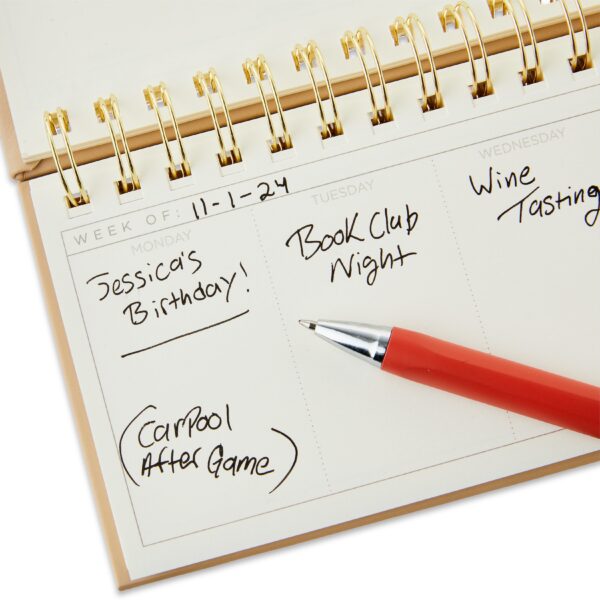 WEEK OF: 11-1-24
MONDAY
Jessica's
Birthday!
(CarPool
After Game)
TUESDAY
Book Club
Night
WEDNESDAY
Wine
Tasting